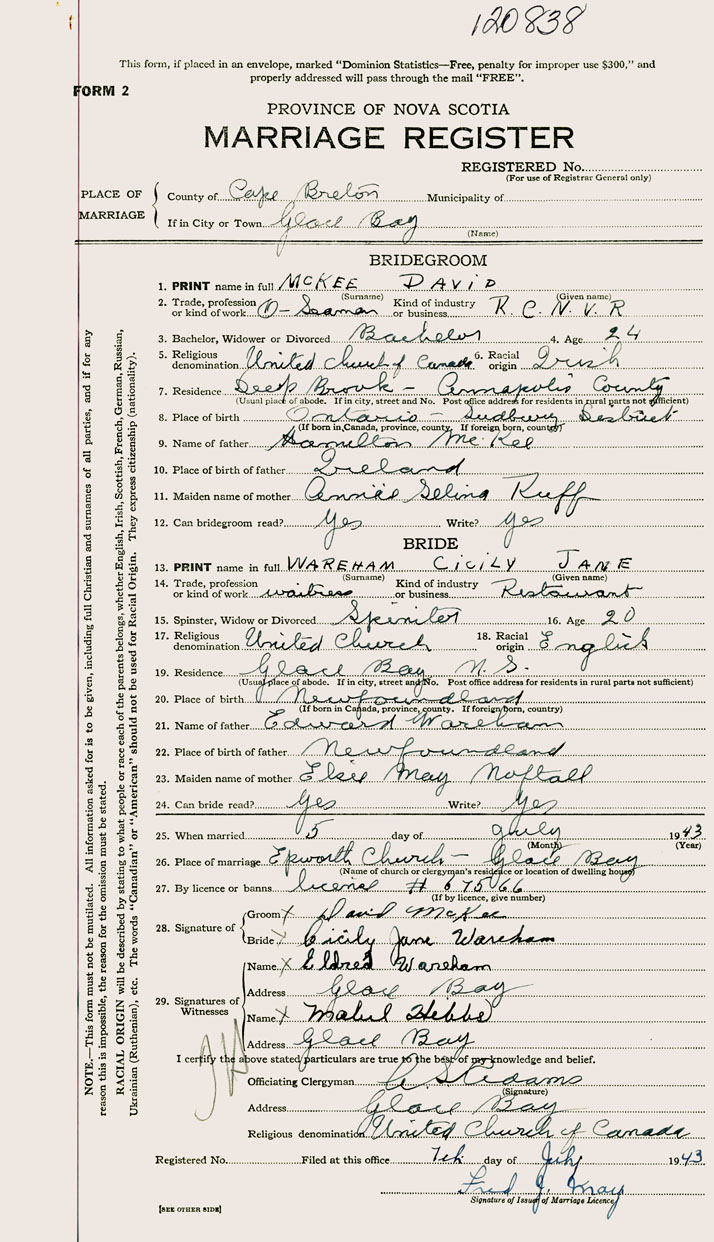 120838
This form, if placed in an envelope, marked "Dominion Statistics—Free, penalty for improper use $300," and
properly addressed will pass through the mail "FREE".
FORM 2
PROVINCE OF NOVA SCOTIA
MARRIAGE REGISTER
REGISTERED No.
(For use of Registrar General only)
PLACE OF MARRIAGE
County of Cape Breton Municipality of
If in City or Town Glace Bay
(Name)
BRIDEGROOM
1. PRINT name in full MCKEE DAVID
(Surname) (Given name)
2. Trade, profession or kind of work O-Seaman Kind of industry or business R.C.N.V.R
3. Bachelor, Widower or Divorced Bachelor 4. Age 24
5. Religious denomination United Church of Canada 6. Racial origin Irish
7. Residence Deep Brook - Annapolis County
(Usual place of abode. If in city, street and No. Post office address for residents in rural parts not sufficient)
8. Place of birth Ontario - Sudbury
(If born in Canada, province, county. If foreign born, country)
9. Name of father Hamilton McKee
10. Place of birth of father Ireland
11. Maiden name of mother Annie Selina Ruff
12. Can bridegroom read? Yes Write? Yes
BRIDE
13. PRINT name in full WAREHAM CICILY JANE
(Surname) (Given name)
14. Trade, profession or kind of work waitress Kind of industry or business Restaurant
15. Spinster, Widow or Divorced Spinster 16. Age 20
17. Religious denomination United Church 18. Racial origin English
19. Residence Glace Bay N.S.
(Usual place of abode. If in city, street and No. Post office address for residents in rural parts not sufficient)
20. Place of birth Newfoundland
(If born in Canada, province, county. If foreign born, country)
21. Name of father Edward Wareham
22. Place of birth of father Newfoundland
23. Maiden name of mother Elsie May Noftall
24. Can bride read? Yes Write? Yes
25. When married 5 day of July 1943
(Month) (Year)
26. Place of marriage Epworth Church - Glace Bay
(Name of church or clergyman's residence or location of dwelling house)
27. By licence or banns license # 67566
(If by licence, give number)
28. Signature of
Groom X David McKee
Bride X Cicily Jane Wareham
29. Signatures of Witnesses
Name X Eldred Wareham
Address Glace Bay
Name X Mabel
Address Glace Bay
I certify the above stated particulars are true to the best of my knowledge and belief.
Officiating Clergyman
(Signature)
Address Glace Bay
Religious denomination United Church of Canada
Registered No. Filed at this office 7th day of July 1943
Fred J.
Signature of Issuer of Marriage Licence
[SEE OTHER SIDE]
NOTE.—This form must not be mutilated. All information asked for is to be given, including full Christian and surnames of all parties, and if for any
reason this is impossible, the reason for the omission must be stated.
RACIAL ORIGIN will be described by stating to what people or race each of the parents belongs, whether English, Irish, Scottish, French, German, Russian,
Ukrainian (Ruthenian), etc. The words "Canadian" or "American" should not be used for Racial Origin. They express citizenship (nationality).